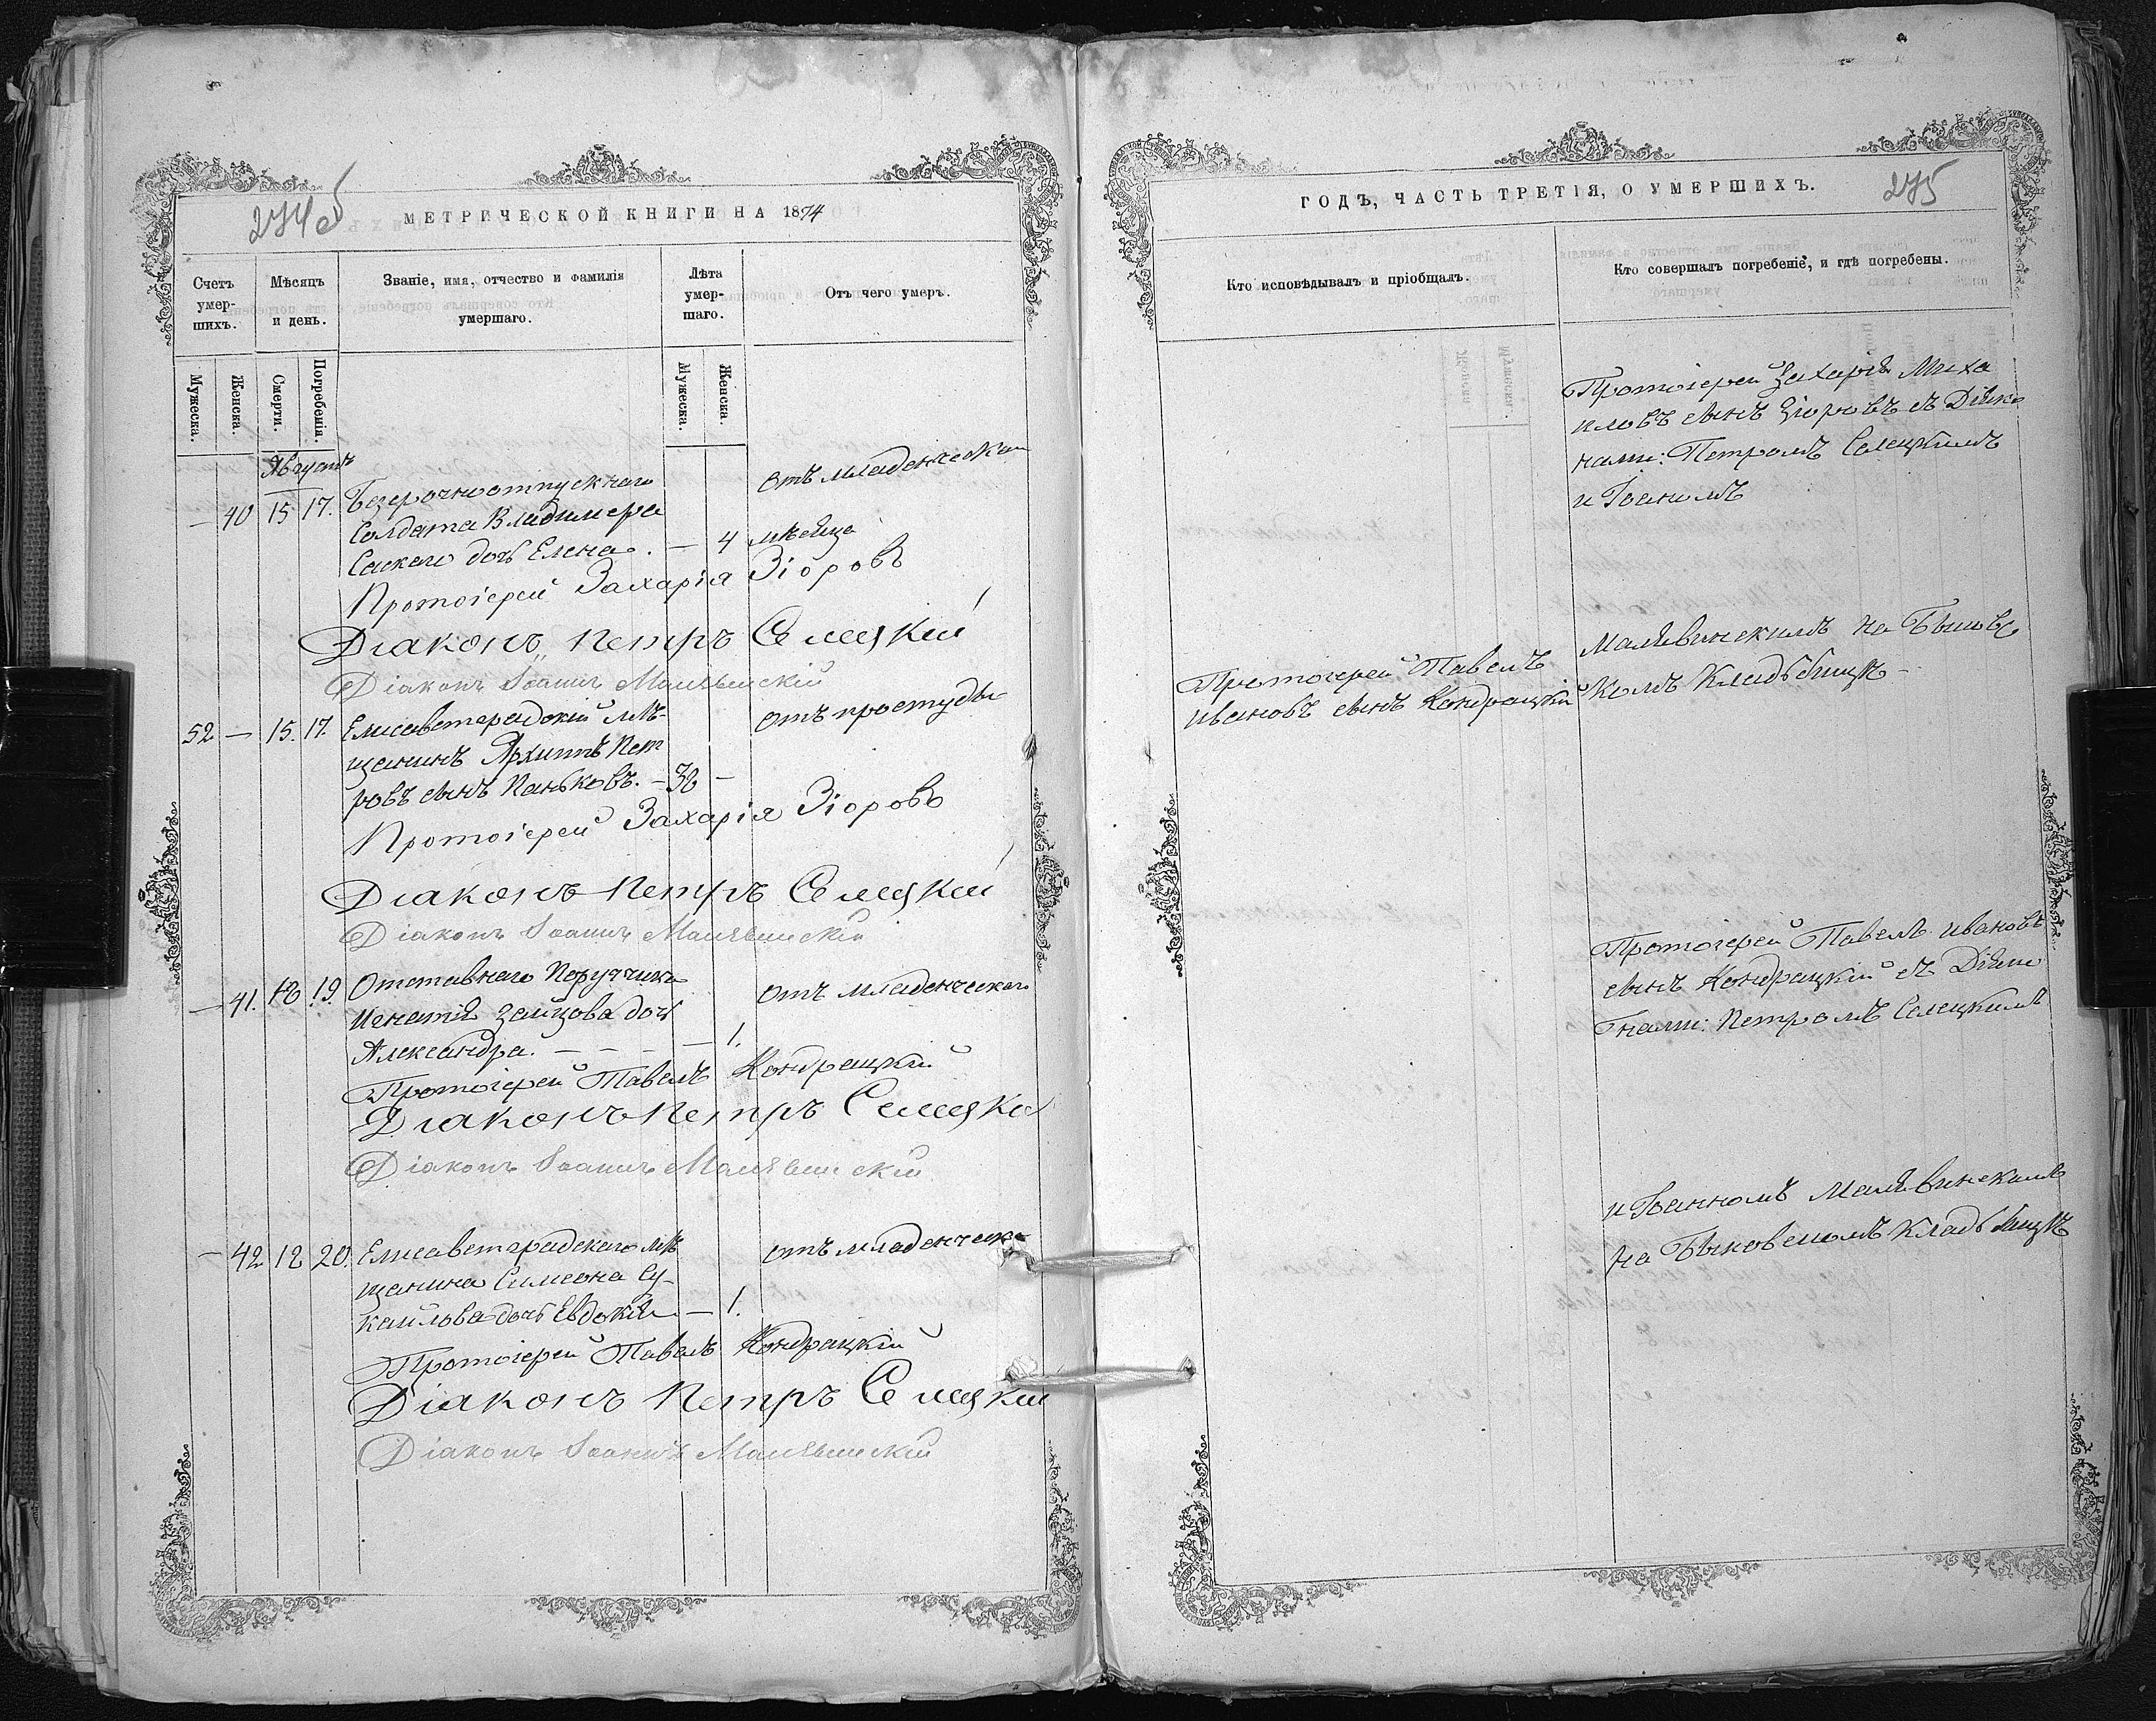 274 об
МЕТРИЧЕСКОЙ КНИГИ НА 1874
Счетъ умер-шихъ.
Мѣсяцъ и день.
Званіе, имя, отчество и фамилія умершаго.
Лѣта умер-шаго.
Отъ чего умеръ.
Мужеска.
Женска.
Смерти.
Погребенія.
Мужеска.
Женска.
Августъ
— 40 15 17. Безсрочноотпускнаго отъ младенческой
Солдата Владимера
дочь Елена. — 4 мѣсяца
Протоіерей Захарія Зіоровъ
Діаконъ Петръ Селецкій
Діаконъ Іоаннъ Малявинскій
52 — 15. 17. Елисаветградскій мѣ- отъ простуды
щанинъ Архиппъ Пет
ровъ сынъ Паньковъ. — 32 —
Протоіерей Захарія Зіоровъ
Діаконъ Петръ Селецкій
Діаконъ Іоаннъ Малявинскій
— 41. 18 19. Отставнаго Поручика отъ младенческой
Игнатія Зайцова дочь
Александра. — — — — 1.
Протоіерей Павелъ Кондрацкій
Діаконъ Петръ Селецкій
Діаконъ Іоаннъ Малявинскій
— 42 18 20. Елисаветградскаго мѣ отъ младенческой
щанина Симеона Су-
каилова дочь Евдокія — 1.
Протоіерей Павелъ Кондрацкій
Діаконъ Петръ Селецкій
Діаконъ Іоаннъ Малявинскій
ГОДЪ, ЧАСТЬ ТРЕТІЯ, О УМЕРШИХЪ.
275
Кто исповѣдывалъ и пріобщалъ.
Кто совершалъ погребеніе, и гдѣ погребены.
Протоіерей Захарія Миха
иловъ сынъ Зіоровъ съ Діяко
нами: Петромъ Селецкимъ
и Іоаномъ
Протоіерей Павелъ
Ивановъ сынъ Кондрацкій
Малявинскимъ на Быковс
комъ Кладбищѣ
Протоіерей Павелъ Ивановъ
сынъ Кондрацкій съ Діяко
нами: Петромъ Селецкимъ
и Іоанномъ Малявинскимъ
на Быковскомъ Кладбищѣ